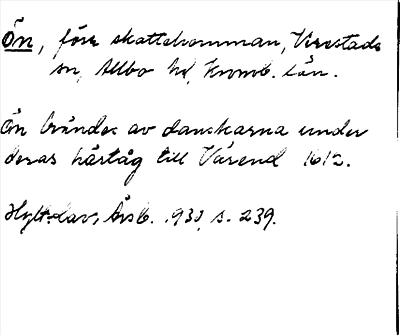 Ön, förr skattehemman, Virestads
sn, Allbo hd, Kronob. län.
Ön brändes av danskarna under
deras härtåg till Värend 1612.
Hylt.-Cav. Årsb. 193 s. 239.